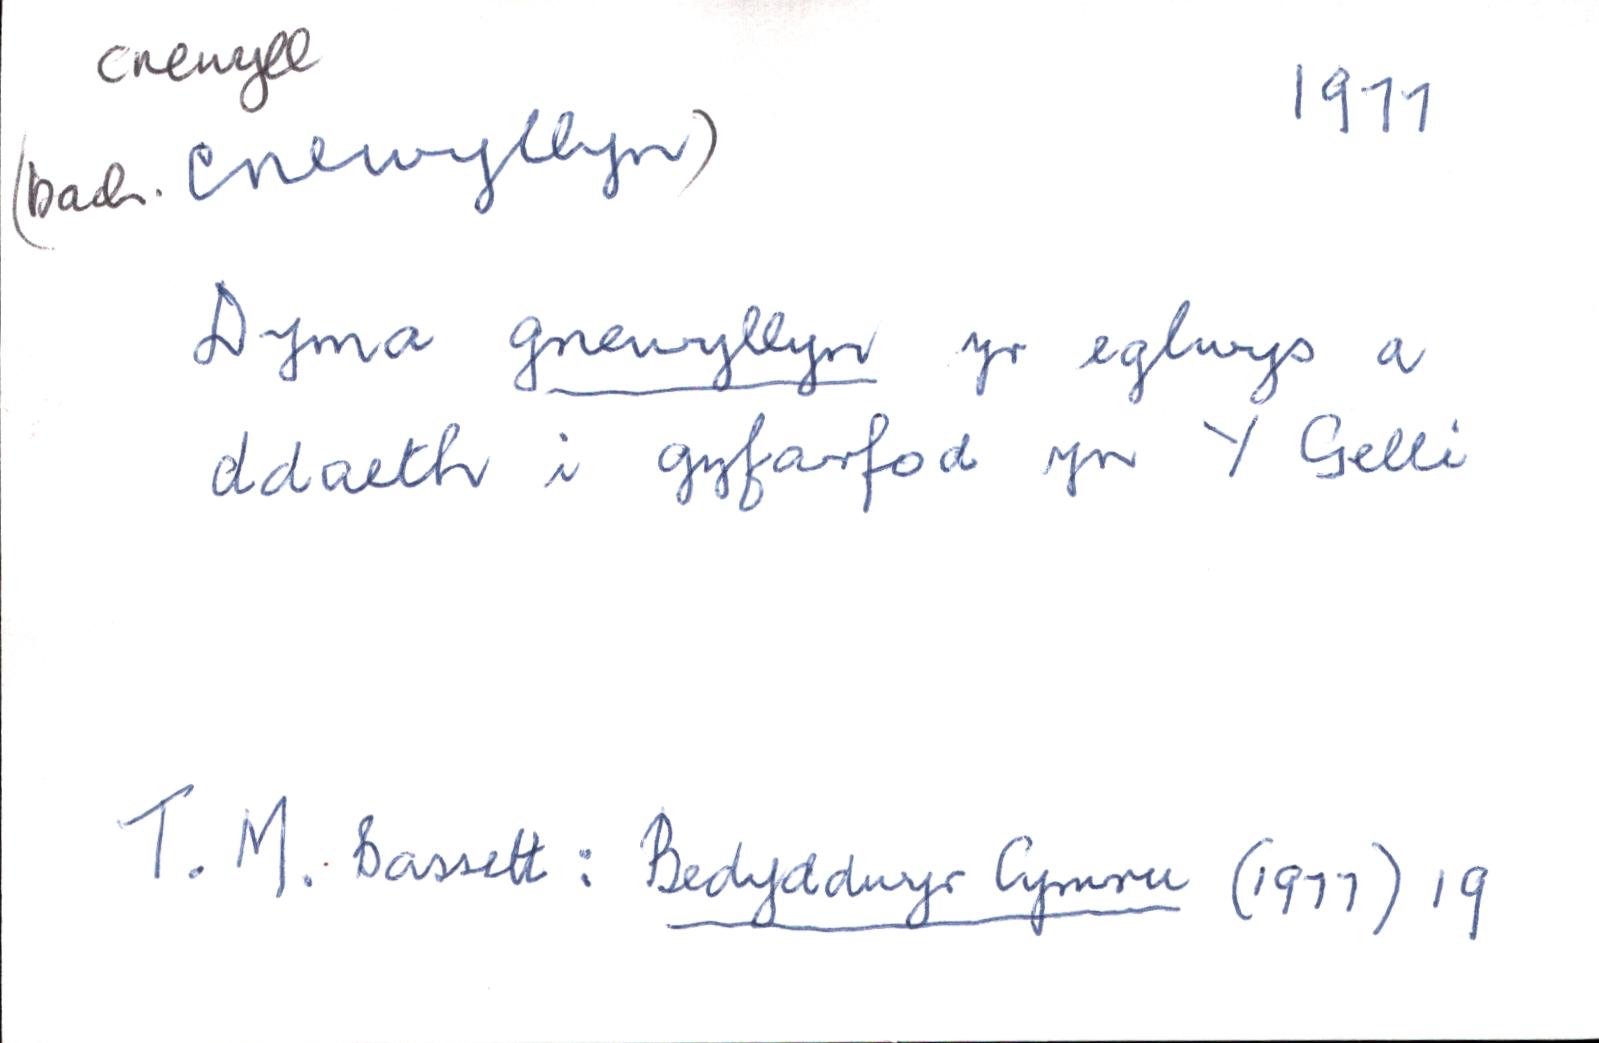 cnewyll
1977
(bach. cnewyllyn)
Dyma gnewyllyn yr eglwys a
ddaeth i gyfarfod yn Y Gelli
T. M. Bassett: Bedyddwyr Cymru (1977) 19